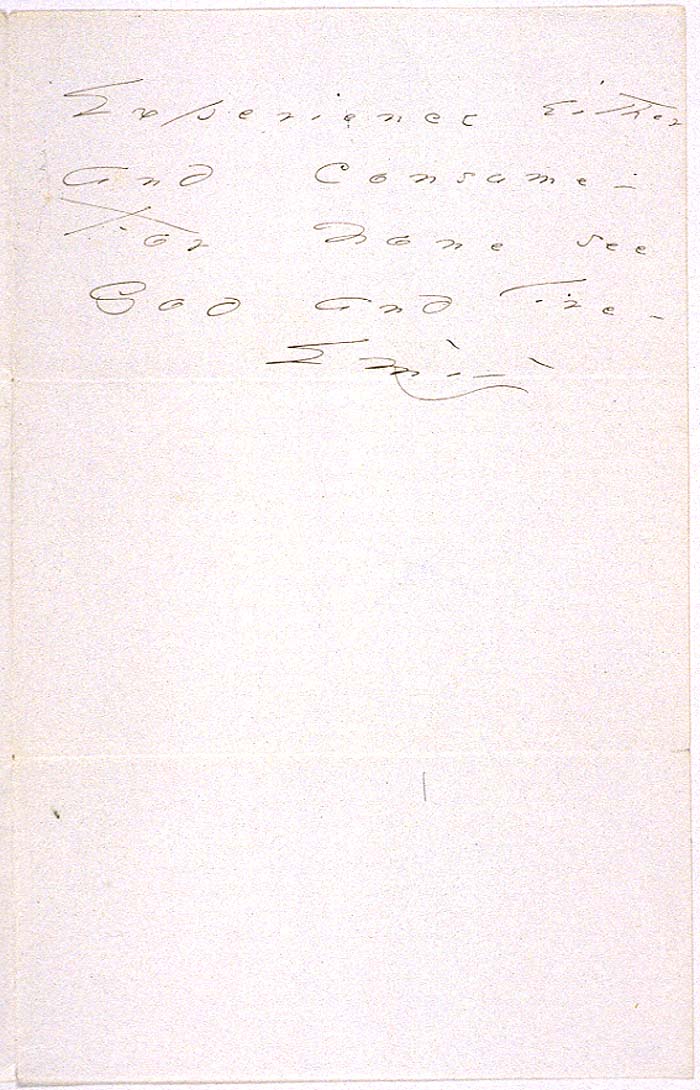 Experience either
and Consume –
For None see
God and live –
Emily –